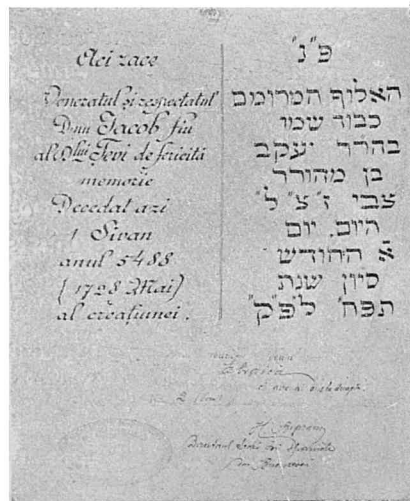 Aci zace
Veneratul și respectatul
Dnu Jacob fiu
al Dlui Țevi de fericită
memorie
Decedat azi
1 Sivan
anul 5488
(1728 Mai)
al creațiunei.
פ"נ
האלוף המרומם
כבוד שמו
בהרר יעקב
בן מהורר
צבי ז"צ"ל
היום, יום
א החודש
סיון שנת
תפח לפ"ק